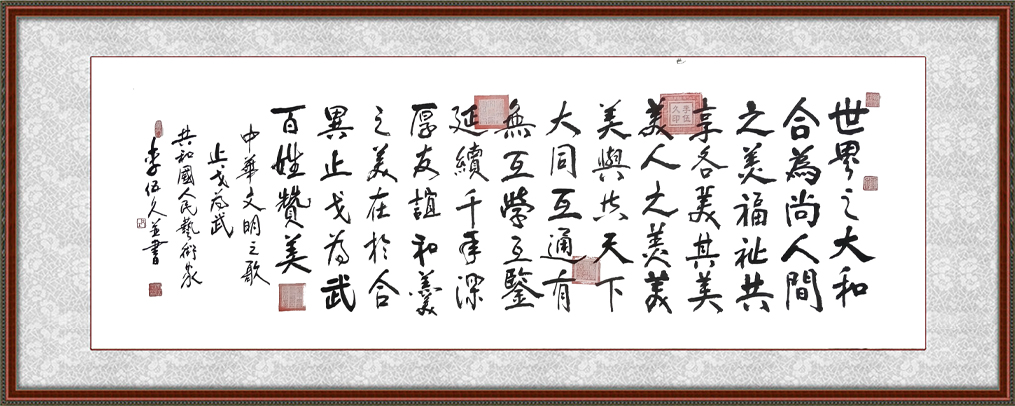 世界之大和
合為尚人間
之美福祉共
享各美其美
美人之美美
美與共天下
大同互通有
無互學互鑒
延續千年深
厚友誼和美
之美在於合
異止戈為武
百姓贊美
中華文明之歌
止戈為武
共和國人民藝術家
李伍久並書
李伍久印